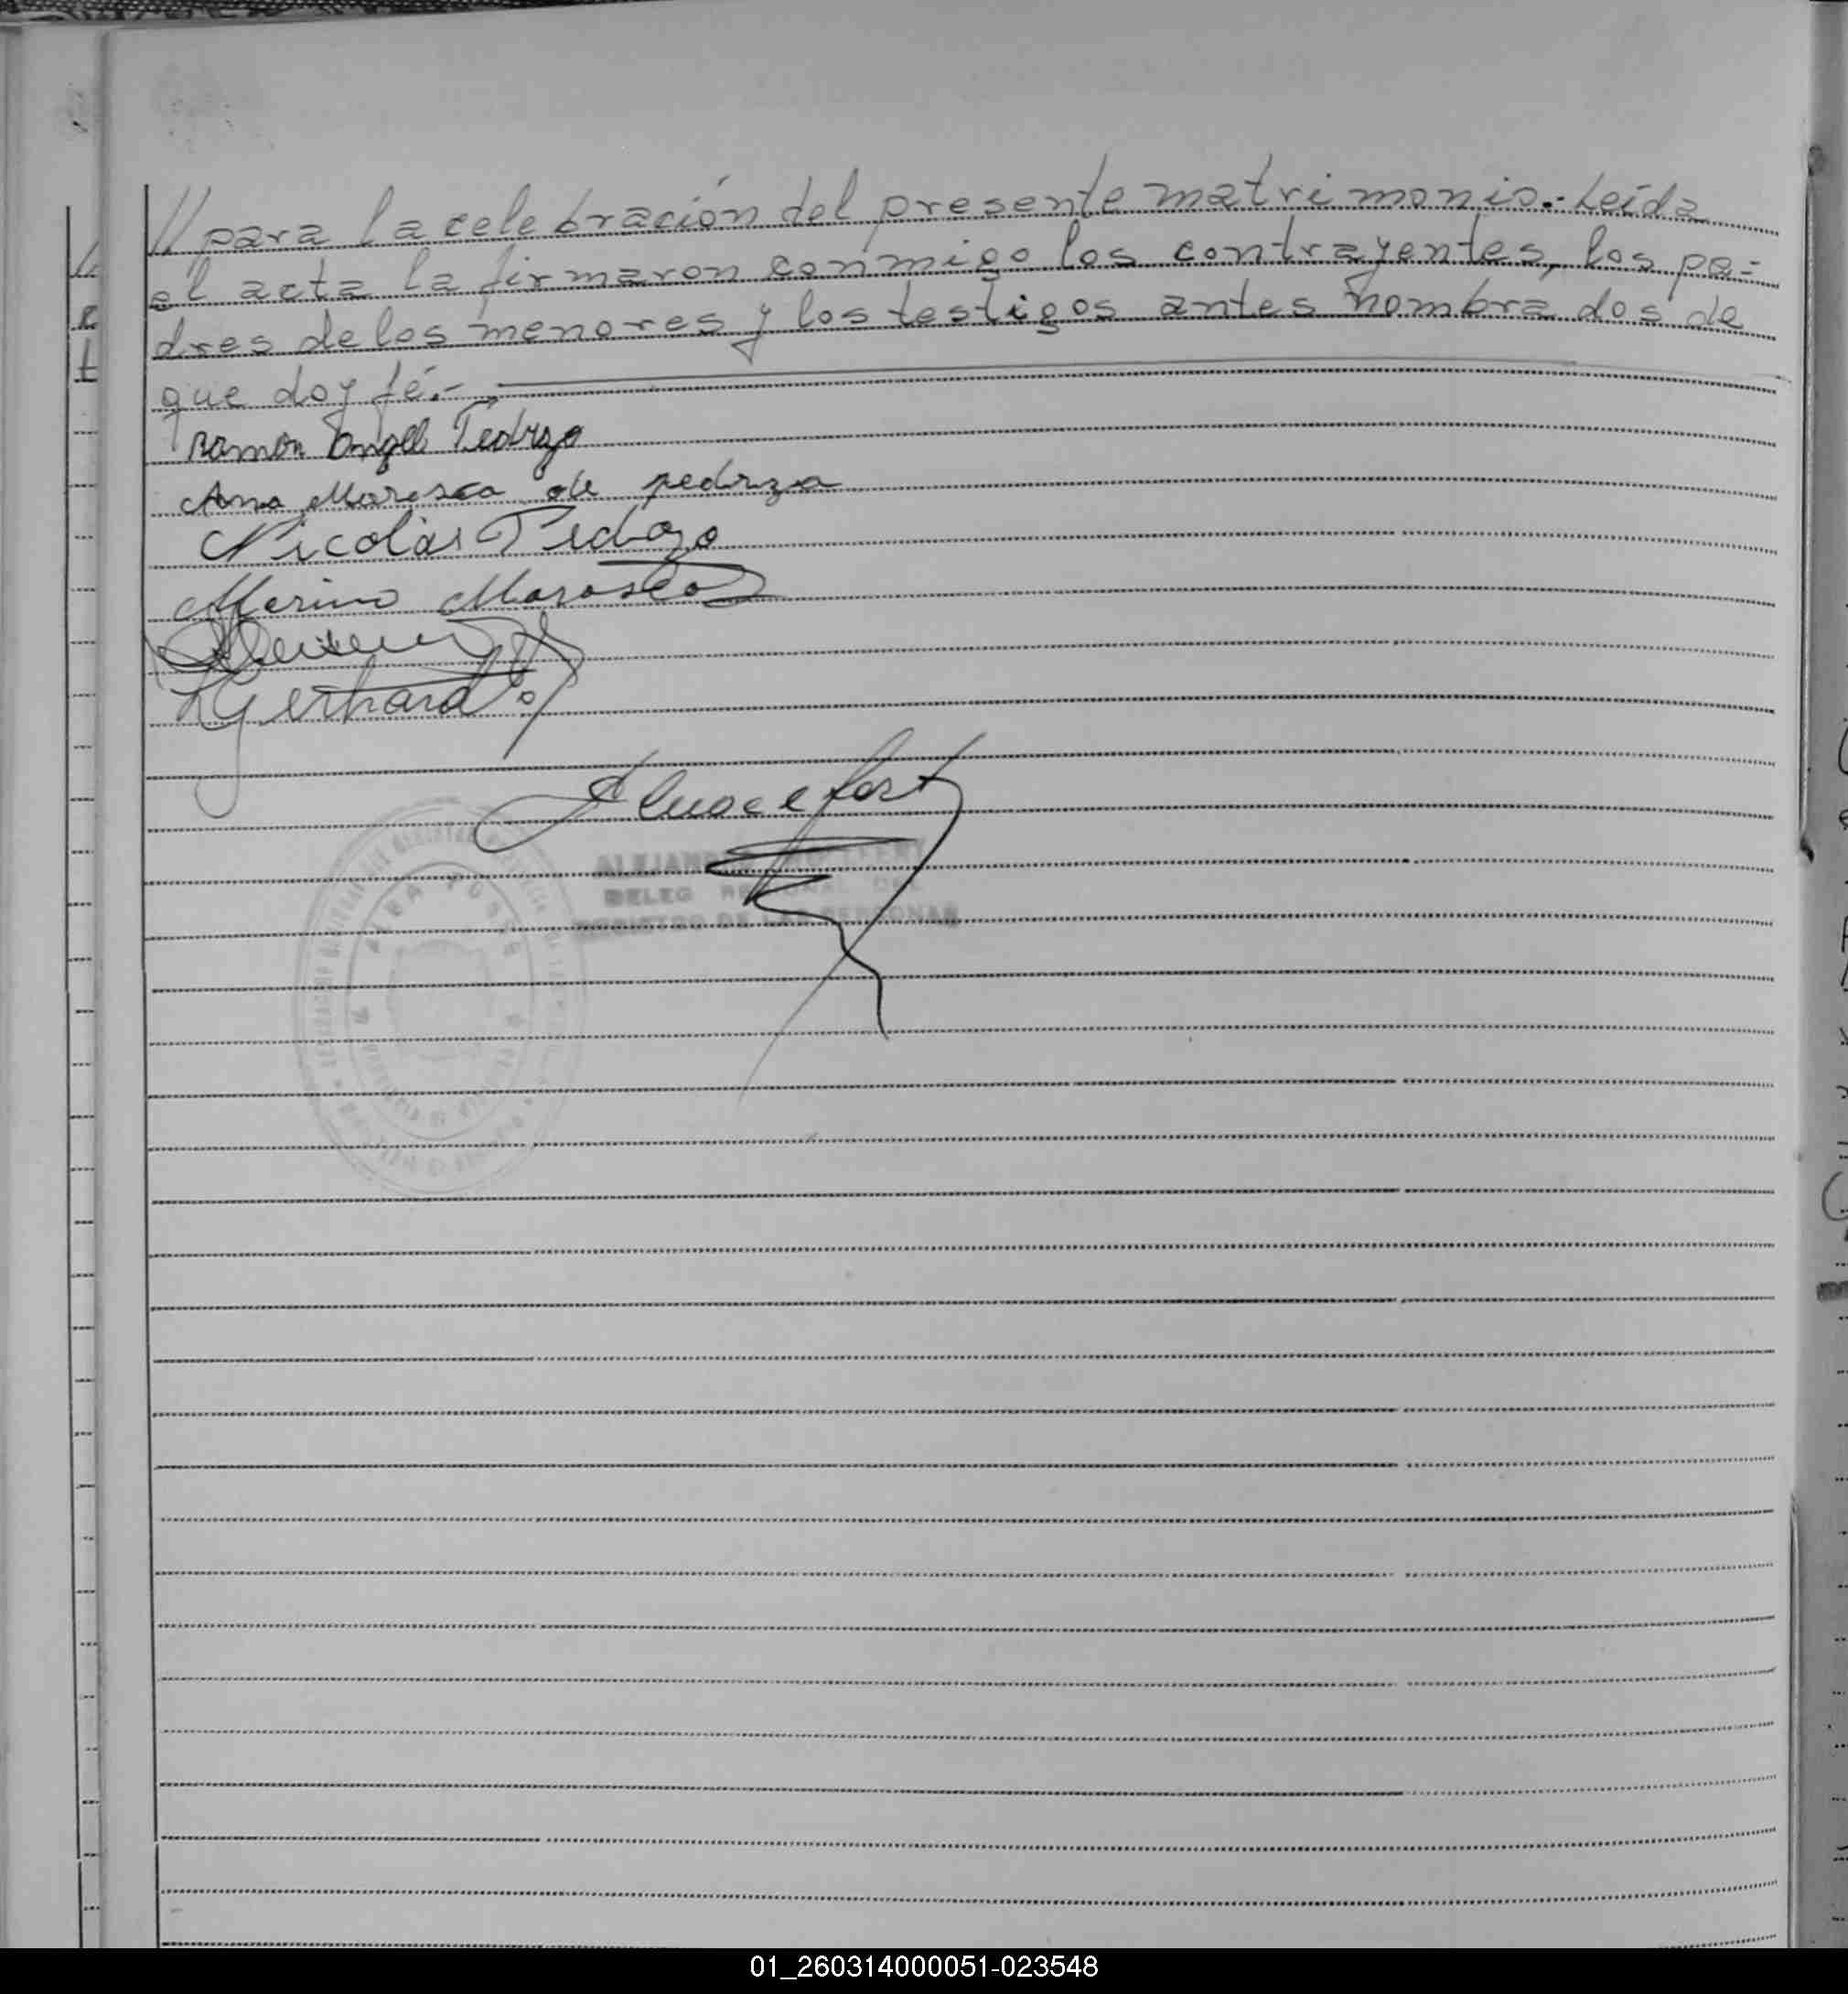 // para la celebración del presente matrimonio.- Leída
el acta la firmaron conmigo los contrayentes, los pa=
dres de los menores y los testigos antes nombrados de
que doy fé.-
Ramon Angel Pedrozo
Ana Maresca de pedrza
Nicolás Pedrozo
Marino
Gerhard
ALEJANDRO
DELEG REGIONAL DEL
REGISTRO DE LAS PERSONAS
01_260314000051-023548